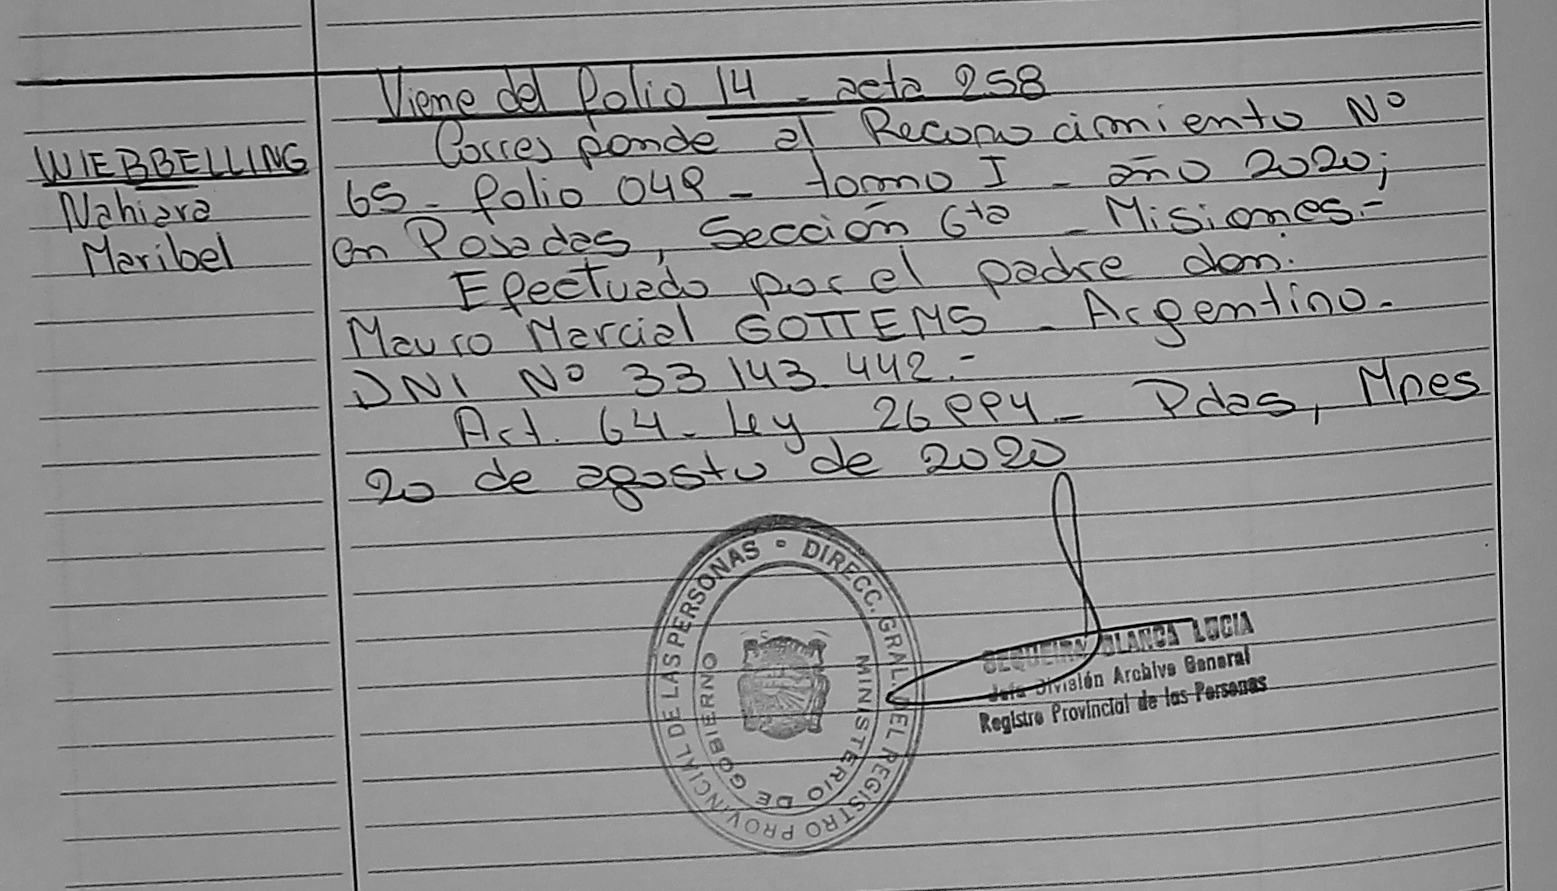 Viene del folio 14 - acta 258
WIEBBELLING
Nahiara
Maribel
Corresponde al Reconocimiento Nº
65 - folio 049 - tomo I - año 2020;
en Posadas, Sección 6ta - Misiones.-
Efectuado por el padre don:
Mauro Marcial GOTTEMS - Argentino.
DNI Nº 33 143.442.-
Art. 64 - Ley 26994 - Pdas, Mnes
20 de agosto de 2020
DIRECC. GRAL. DEL REGISTRO PROVINCIAL DE LAS PERSONAS
MINISTERIO DE GOBIERNO
SEQUEIRA BLANCA LUCIA
Jefa División Archivo General
Registro Provincial de las Personas